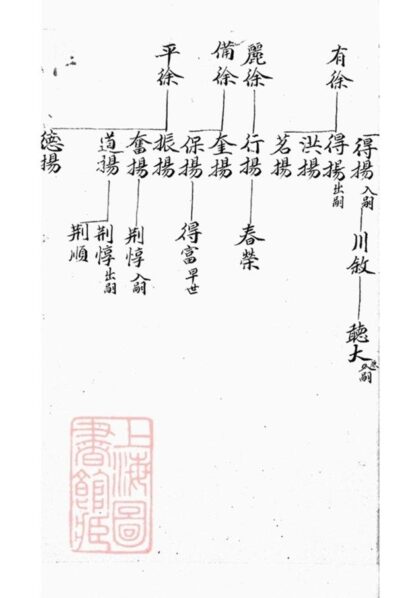 有徐
麗徐
備徐
平徐
得揚 入嗣
得揚 出嗣
洪揚
茗揚
行揚
奎揚
保揚
振揚
奮揚
道揚
德揚
川敘
春榮
得富 早世
荆惇 入嗣
荆惇 出嗣
荆順
聽大 嗣
上海圖書館藏